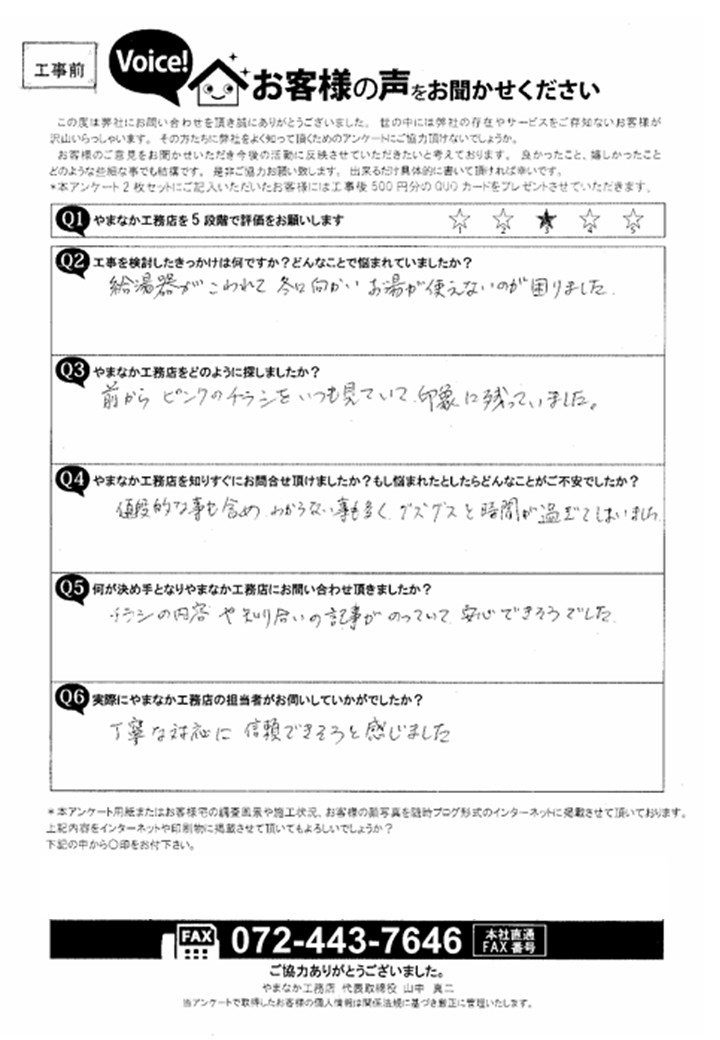 工事前
Voice!
お客様の声をお聞かせください
この度は弊社にお問い合わせを頂き誠にありがとうございました。 世の中には弊社の存在やサービスをご存知ないお客様が
沢山いらっしゃいます。 その方たちに弊社をよく知って頂くためのアンケートにご協力頂けないでしょうか。
お客様のご意見をお聞かせいただき今後の活動に反映させていただきたいと考えております。 良かったこと、嬉しかったこと
どのような些細な事でも結構です。 是非ご協力お願い致します。 出来るだけ具体的に書いて頂ければ幸いです。
*本アンケート2枚セットにご記入いただいたお客様には工事後500円分のQUOカードをプレゼントさせていただきます。
Q1 やまなか工務店を5段階で評価をお願いします ☆1 ☆2 ★3 ☆4 ☆5
Q2 工事を検討したきっかけは何ですか?どんなことで悩まれていましたか?
給湯器がこわれて 冬に向かい お湯が使えないのが困りました.
Q3 やまなか工務店をどのように探しましたか?
前から ピンクのチラシをいつも見ていて、印象に残っていました。
Q4 やまなか工務店を知りすぐにお問合せ頂けましたか?もし悩まれたとしたらどんなことがご不安でしたか?
値段的な事も含め、わからない事も多く、グズグズと時間が過ぎてしまいました
Q5 何が決め手となりやまなか工務店にお問い合わせ頂きましたか?
チラシの内容や知り合いの記事がのっていて、安心できそうでした.
Q6 実際にやまなか工務店の担当者がお伺いしていかがでしたか?
丁寧な対応に 信頼できそうと感じました
*本アンケート用紙またはお客様宅の調査風景や施工状況、お客様の顔写真を随時ブログ形式のインターネットに掲載させて頂いております。
上記内容をインターネットや印刷物に掲載させて頂いてもよろしいでしょうか?
下記の中から〇印をお付下さい。
FAX 072-443-7646 本社直通
FAX番号
ご協力ありがとうございました。
やまなか工務店 代表取締役 山中 真二
当アンケートで取得したお客様の個人情報は関係法規に基づき厳正に管理いたします。